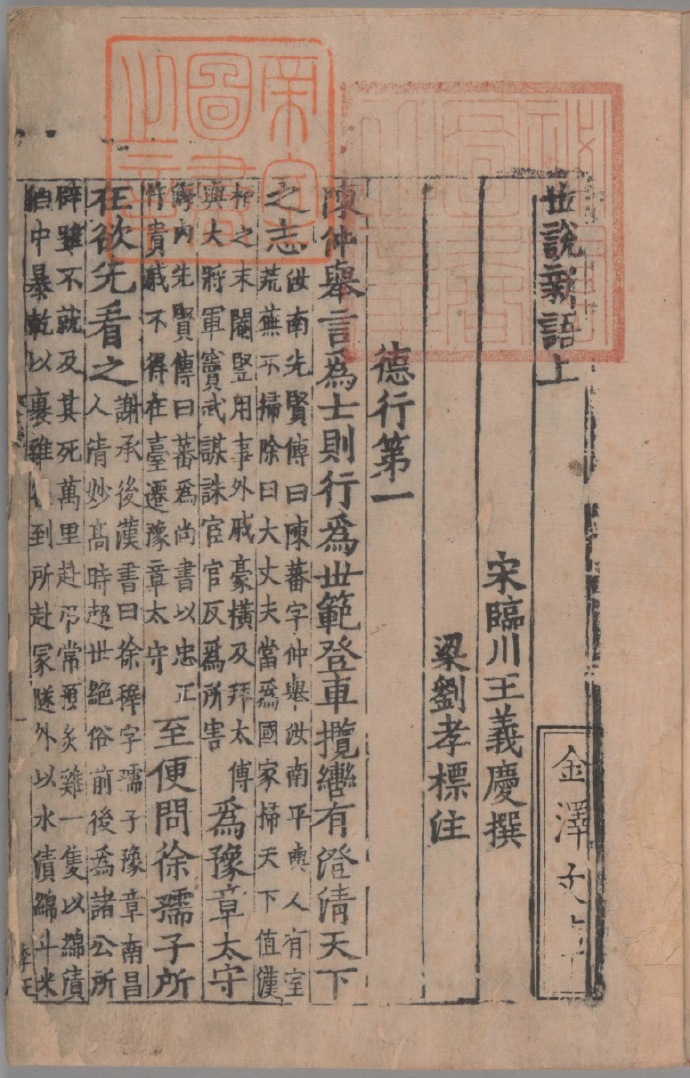 世說新語上
金澤文庫
宋臨川王義慶撰
梁劉孝標注
德行第一
陳仲舉言爲士則行爲世範登車攬轡有澄清天下
之志
汝南先賢傳曰陳蕃字仲舉汝南平輿人有室
荒蕪不掃除曰大丈夫當爲國家掃天下值漢
桓之末閹豎用事外戚豪橫及拜太傅
與大將軍竇武謀誅宦官反爲所害
爲豫章太守
海內先賢傳曰蕃爲尚書以忠正
忤貴戚不得在臺遷豫章太守
至便問徐孺子所
在欲先看之
謝承後漢書曰徐穉字孺子豫章南昌
人清妙高時超世絕俗前後爲諸公所
辟雖不就及其死萬里赴弔常預炙雞一隻以綿漬
酒中暴乾以裹雞到所赴冢隧外以水漬綿斗米
帝室圖書之章